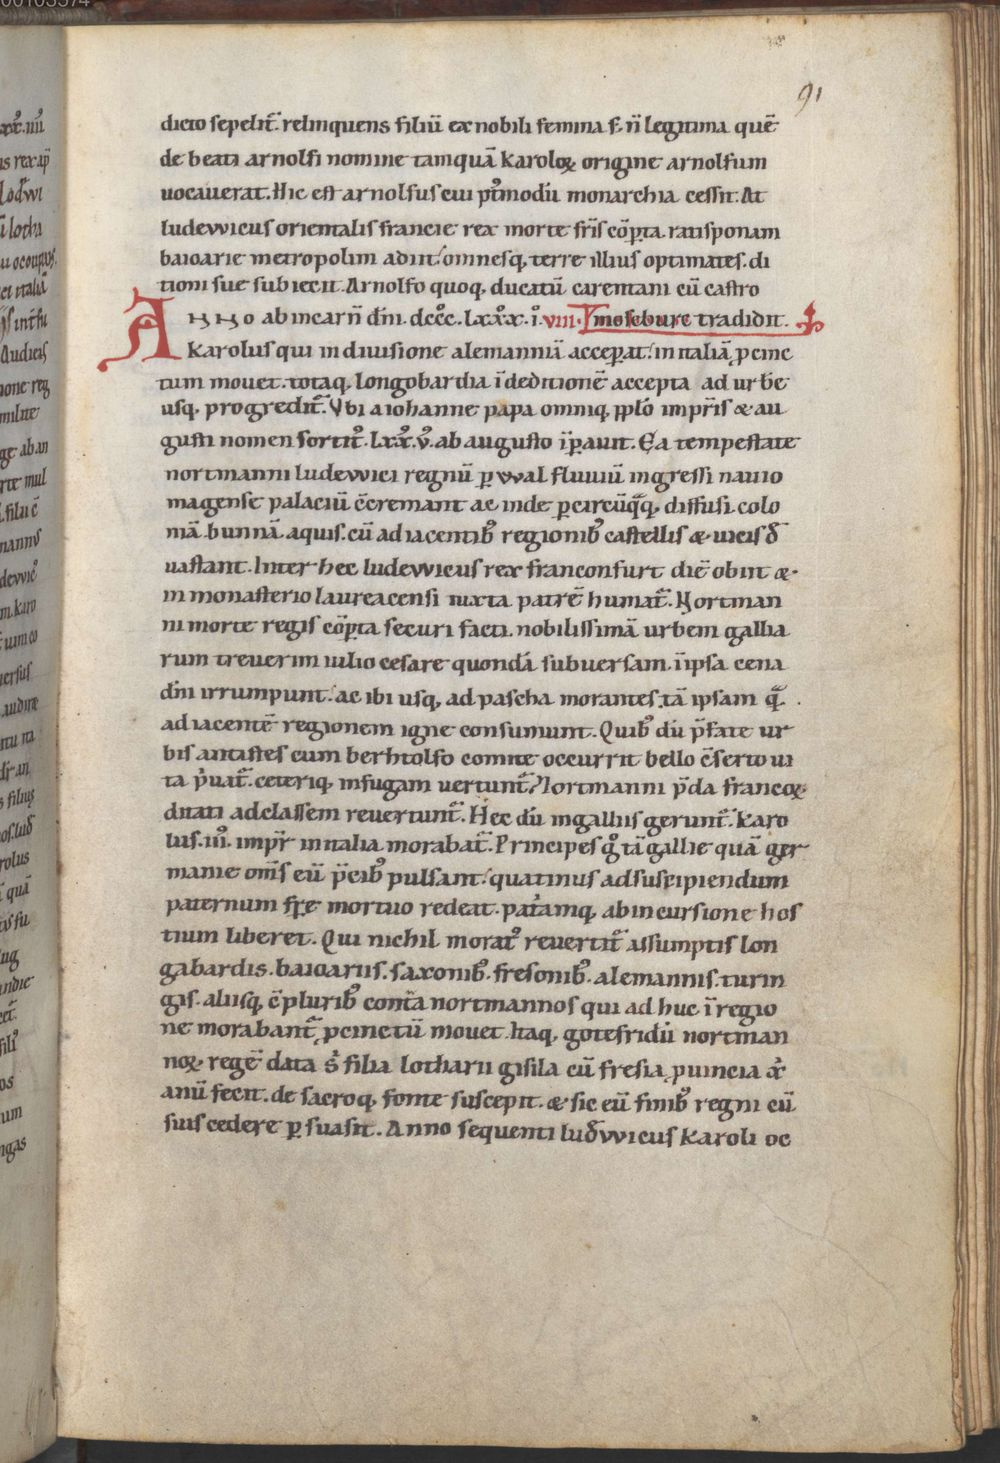 91
dicto sepelit᷑. relinquens filiū ex nobili femina s; n̄ legitima quē
de beati arnolfi nomine tamquā karoloꝝ origine arnolfum
uocauerat. Hic est arnolfus cui p̄tmodū monarchia cessit. At
ludewicus orientalis francie rex morte fr̄is cōꝑta. ratisponam
baioarie metropolim adiit. omnesq; terre illius optimates. di
tioni sue subiecit. Arnolfo quoq; ducatū carentani cū castro
mosebure tradidit.
Anno ab incarn̄ dn̄i. dccc̊. lxxx̊. i̊. viii.
karolus qui in diuisione alemanniā acceꝑat. in italiā ꝓcinc
tum mouet. totaq; longobardia ī deditionē accepta ad urbē
usq; progredit᷑. Vbi a iohanne papa omniq; pplo impr̄is & au
gusti nomen sortit᷑. lxx̊. v̊. ab augusto īꝑauit. Ea tempestate
nortmanni ludewici regnū ꝑ wal fluuiū ingressi nauio
magense palaciū c̄cremant ac inde ꝑ circūq̄q; diffusi. colo
niā. bunnā. aquis. cū adiacentib; regionib; castellis & uicis d̄
uastant. Inter hec ludewicus rex franconfurt diē obiit &
in monasterio laureacensi iuxta patrē humat᷑. Nortman
ni morte regis cōꝑta securi facti. nobilissimā urbem gallia
rum treuerim iulio cesare quondā subuersam. ī ipsa cena
dn̄i irrumpunt. ac ibi usq; ad pascha morantes. tā ipsam q̄
adiacentē regionem igne consumunt. Quib; dū p̄fate ur
bis antistes cum berhtolfo comite occurrit bello c̄serto ui
ta p̓uat᷑. ceteriq; in fugam uertunt᷑. Nortmanni p̄da francoꝝ
ditati ad classem reuertunt᷑. Hec dū in galliis gerunt᷑. karo
lus. iii̊. impr̄ in italia morabat᷑. Principes q̊ tā gallie quā ger
manie om̄s eū p̄cib; pulsant. quatinus ad suscipiendum
paternum fr̄e mortuo redeat. patͥamq; ab incursione hos
tium liberet. Qui nichil morat᷑ reuertit᷑ assumptis lon
gabardis. baioariis. saxonib; fresonib; alemannis. turin
gis. aliisq; c̄pluribꝫ contͣa nortmannos qui ad huc ī regio
ne morabant᷑ ꝓcinctū mouet. Itaq; gotefridū nortman
noꝝ regē data s̓ filia lotharii gisila cū fresia ꝓuincia xͥ
anū fecit. de sacroq; fonte suscepit. & sic eū finib; regni cū
suis cedere ꝑsuasit. Anno sequenti lud̄wicus karoli oc